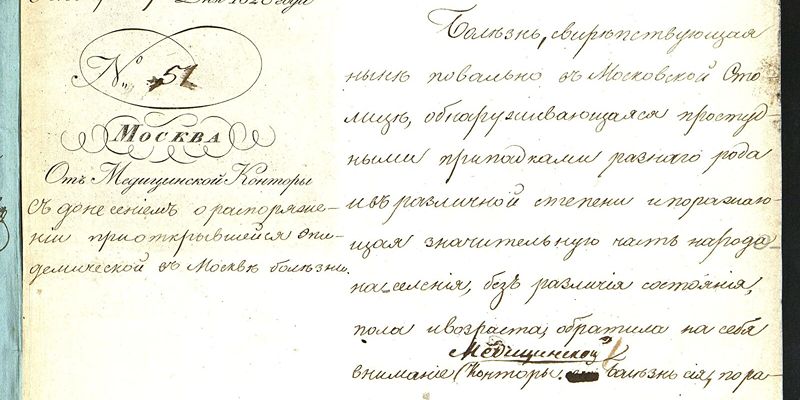 Дня 182 года
№ 51
Москва
Отъ Медицинской Конторы
съ донесеніемъ о распоряже-
ніи при открывшейся эпи-
демической въ Москвѣ болѣзни.
Болѣзнь, свирѣпствующая
нынѣ повально въ Московской Сто
лицѣ, обнаруживающаяся простуд-
ными припадками разнаго рода
и въ различной степени и поражаю-
щая значительную часть народа
населенія, безъ различія состоянія,
пола и возраста, обратила на себя
Медицинской
вниманіе Конторы. Болѣзнь сія, пора-